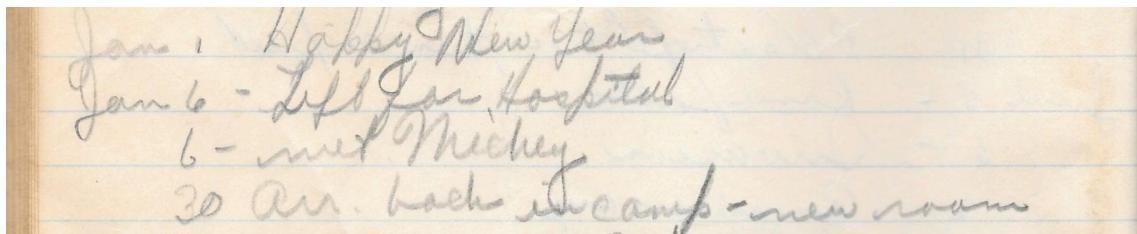 Jan 1 Happy New Year
Jan 6 - Left for Hospital
6 - met Mickey
30 Arr. back in camp - new room